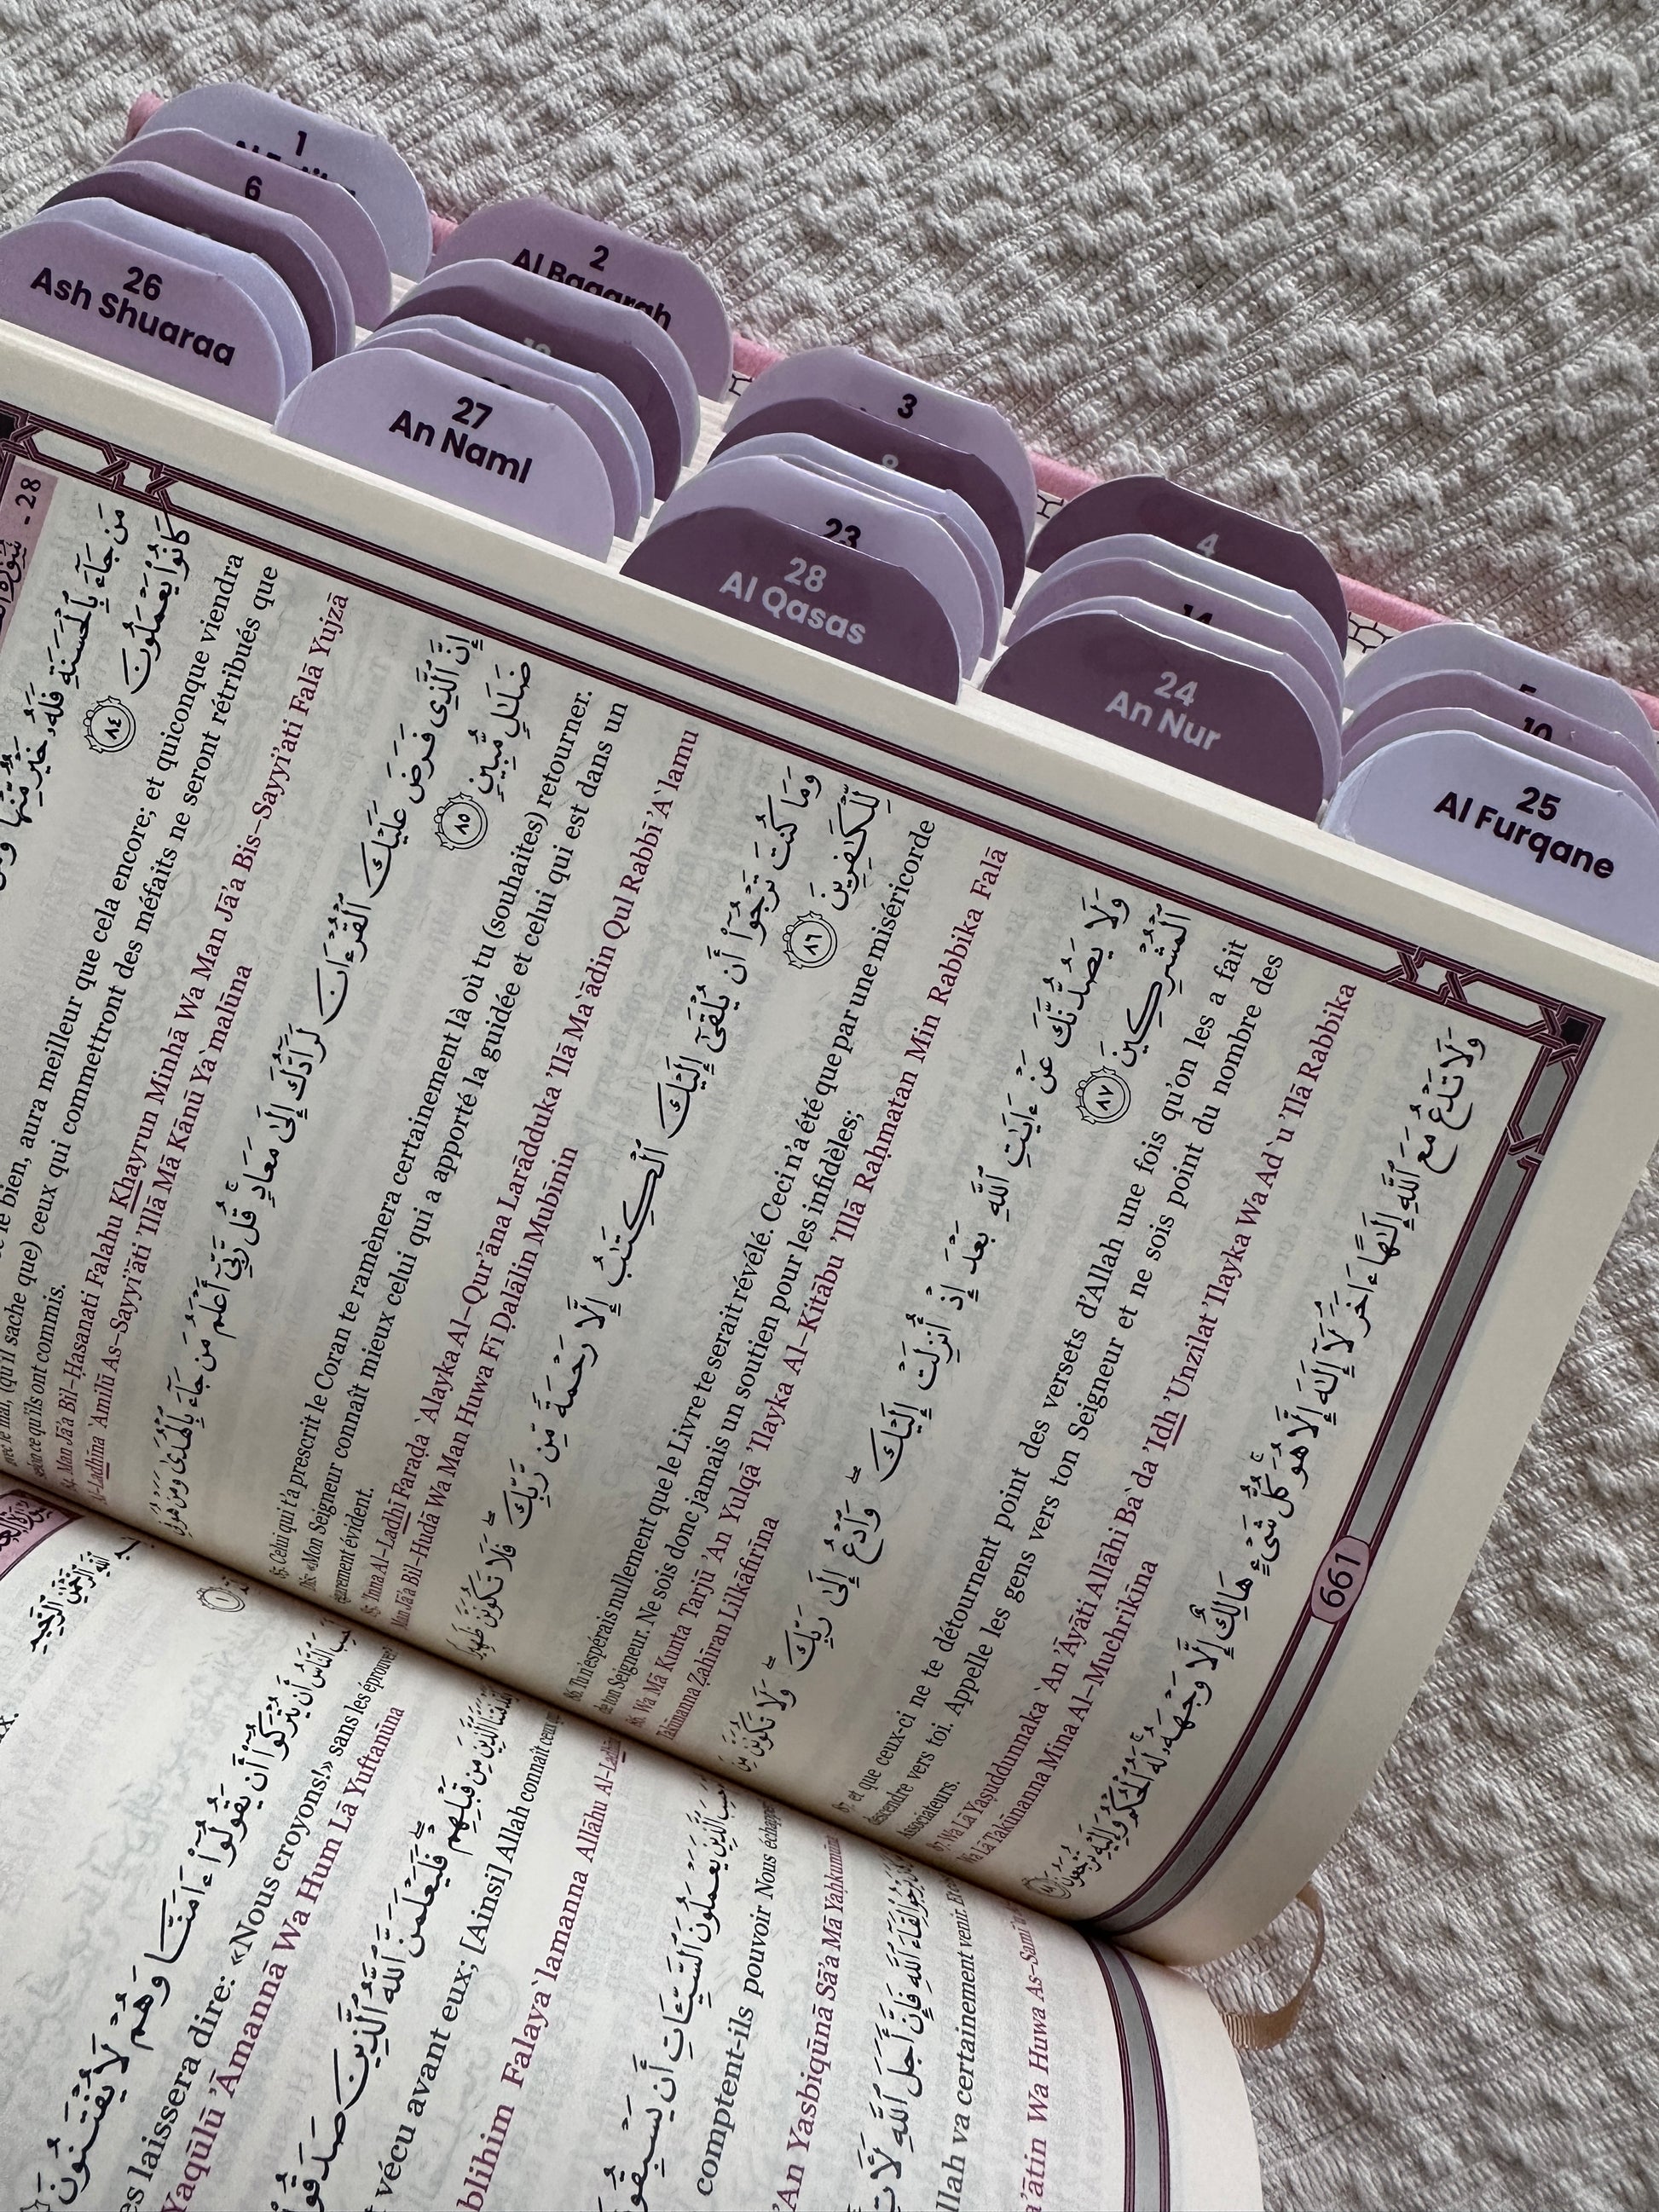 1
2
Al Baqarah
3
4
6
8
14
10
23
26
Ash Shuaraa
27
An Naml
28
Al Qasas
24
An Nur
25
Al Furqane
28 -
مَن جَآءَ بِٱلْحَسَنَةِ فَلَهُۥ خَيْرٌ مِّنْهَا
كَانُوا۟ يَعْمَلُونَ ٨٤
le bien, aura meilleur que cela encore; et quiconque viendra
avec le mal, (qu'il sache que) ceux qui commettront des méfaits ne seront rétribués que
selon ce qu'ils ont commis.
84. Man Jā'a Bil-Ḥasanati Falahu Khayrun Minhā Wa Man Jā'a Bis-Sayyi'ati Falā Yujzā
Al-Ladhīna `Amilū As-Sayyi'āti 'Illā Mā Kānū Ya`malūna
إِنَّ ٱلَّذِى فَرَضَ عَلَيْكَ ٱلْقُرْءَانَ لَرَآدُّكَ إِلَىٰ مَعَادٍ ۚ قُل رَّبِّىٓ أَعْلَمُ مَن جَآءَ بِٱلْهُدَىٰ وَمَنْ هُوَ فِى
ضَلَـٰلٍ مُّبِينٍ ٨٥
85. Celui qui t'a prescrit le Coran te ramènera certainement là où tu (souhaites) retourner.
Dis: «Mon Seigneur connaît mieux celui qui a apporté la guidée et celui qui est dans un
égarement évident.
85. 'Inna Al-Ladhī Faraḍa `Alayka Al-Qur'āna Larādduka 'Ilā Ma`ādin Qul Rabbī 'A`lamu
Man Jā'a Bil-Hudá Wa Man Huwa Fī Ḍalālin Mubīnin
وَمَا كُنتَ تَرْجُوٓا۟ أَن يُلْقَىٰٓ إِلَيْكَ ٱلْكِتَـٰبُ إِلَّا رَحْمَةً مِّن رَّبِّكَ ۖ فَلَا تَكُونَنَّ ظَهِيرًا
لِّلْكَـٰفِرِينَ ٨٦
86. Tu n'espérais nullement que le Livre te serait révélé. Ceci n'a été que par une miséricorde
de ton Seigneur. Ne sois donc jamais un soutien pour les infidèles;
86. Wa Mā Kunta Tarjū 'An Yulqá 'Ilayka Al-Kitābu 'Illā Raḥmatan Min Rabbika Falā
Takūnanna Ẓahīran Lilkāfirīna
وَلَا يَصُدُّنَّكَ عَنْ ءَايَـٰتِ ٱللَّهِ بَعْدَ إِذْ أُنزِلَتْ إِلَيْكَ ۖ وَٱدْعُ إِلَىٰ رَبِّكَ ۖ وَلَا تَكُونَنَّ مِنَ
ٱلْمُشْرِكِينَ ٨٧
87. et que ceux-ci ne te détournent point des versets d'Allah une fois qu'on les a fait
descendre vers toi. Appelle les gens vers ton Seigneur et ne sois point du nombre des
Associateurs.
87. Wa Lā Yaṣuddunnaka `An 'Āyāti Allāhi Ba`da 'Idh 'Unzilat 'Ilayka Wa Ad`u 'Ilá Rabbika
Wa Lā Takūnanna Mina Al-Muchrikīna
وَلَا تَدْعُ مَعَ ٱللَّهِ إِلَـٰهًا ءَاخَرَ ۘ لَآ إِلَـٰهَ إِلَّا هُوَ ۚ كُلُّ شَىْءٍ هَالِكٌ إِلَّا وَجْهَهُۥ ۚ لَهُ ٱلْحُكْمُ وَإِلَيْهِ تُرْجَعُونَ
661
ٱللَّهِ ٱلرَّحْمَـٰنِ ٱلرَّحِيمِ
حَسِبَ ٱلنَّاسُ أَن يُتْرَكُوٓا۟ أَن يَقُولُوٓا۟ ءَامَنَّا وَهُمْ لَا يُفْتَنُونَ
es laissera dire: «Nous croyons!» sans les éprouver
Yaqūlū 'Āmannā Wa Hum Lā Yuftanūna
فَتَنَّا ٱلَّذِينَ مِن قَبْلِهِمْ ۖ فَلَيَعْلَمَنَّ ٱللَّهُ ٱلَّذِينَ صَدَقُوا۟
vécu avant eux; [Ainsi] Allah connaît ceux
blihim Falaya`lamanna Allāhu Al-Ladhīna
حَسِبَ ٱلَّذِينَ يَعْمَلُونَ ٱلسَّيِّـَٔاتِ أَن يَسْبِقُونَا
comptent-ils pouvoir Nous échapper
'An Yasbiqūnā Sā'a Mā Yaḥkumūna
يَرْجُوا۟ لِقَآءَ ٱللَّهِ فَإِنَّ أَجَلَ ٱللَّهِ لَـَٔاتٍ
llah va certainement venir. Et c'e
a'ātin Wa Huwa As-Samī`u